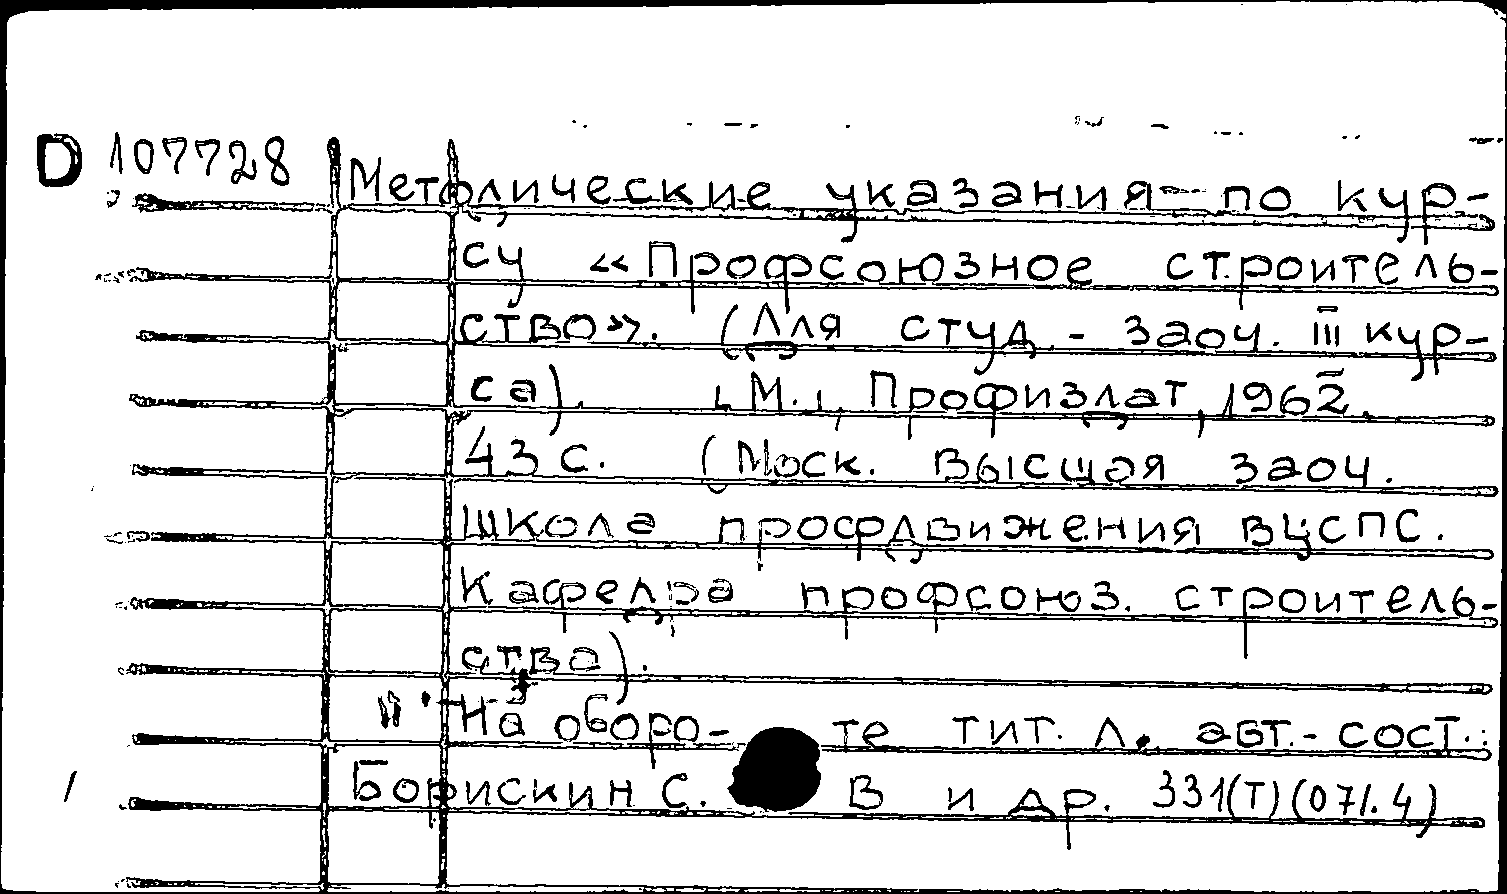 D 107728 Методические указания по кур-
су «Профсоюзное строитель-
ство». (Для студ.-заоч. III кур-
са). [М.], Профиздат, 1962.
43 с. (Моск. высшая заоч.
школа профдвижения ВЦСПС.
Кафедра профсоюз. строитель-
ства).
На оборо- те тит. л. авт.-сост.:
Борискин С. В и др. 331(Т)(071.4)